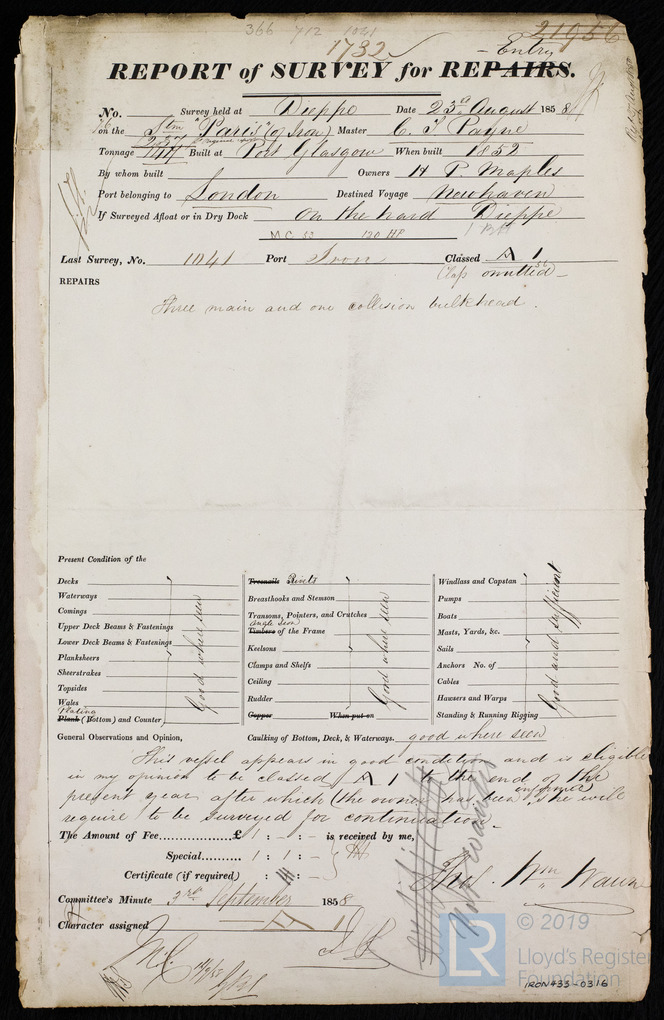 366 712 1041
21956
1732
- Entry
REPORT of SURVEY for REPAIRS.
No. Survey held at Dieppe Date 23rd August 1858
on the Stm "Paris" (of Iron) Master C. J. Payne
Tonnage Built at Port Glasgow When built 1852
By whom built Owners H P Maples
Port belonging to London Destined Voyage Newhaven
If Surveyed Afloat or in Dry Dock on the hard Dieppe
M C 120 HP
Last Survey, No. 1041 Port Iron Classed A 1
Class omitted
REPAIRS
Three main and one collision bulkhead.
Present Condition of the
Decks
Waterways
Comings
Upper Deck Beams & Fastenings
Lower Deck Beams & Fastenings
Planksheers
Sheerstrakes
Topsides
Wales
Plating
Plank (Bottom) and Counter
Good where seen
Treenails Rivets
Breasthooks and Stemson
Transoms, Pointers, and Crutches
Angle Iron
Timbers of the Frame
Keelsons
Clamps and Shelfs
Ceiling
Rudder
Copper When put on
Good where seen
Windlass and Capstan
Pumps
Boats
Masts, Yards, &c.
Sails
Anchors No. of
Cables
Hawsers and Warps
Standing & Running Rigging
Good and sufficient
General Observations and Opinion, Caulking of Bottom, Deck, & Waterways. good where seen
This vessel appears in good condition and is eligible
in my opinion to be classed A 1 to the end of the
present year after which (the owner has been informed) she will
require to be surveyed for continuation.
The Amount of Fee £ 1 : - : - is received by me,
Special 1 : 1 : -
Certificate (if required) : : -
Committee's Minute 3rd September 1858
Character assigned A 1
© 2019
LR
Lloyd's Register
Foundation
IRON433-0316